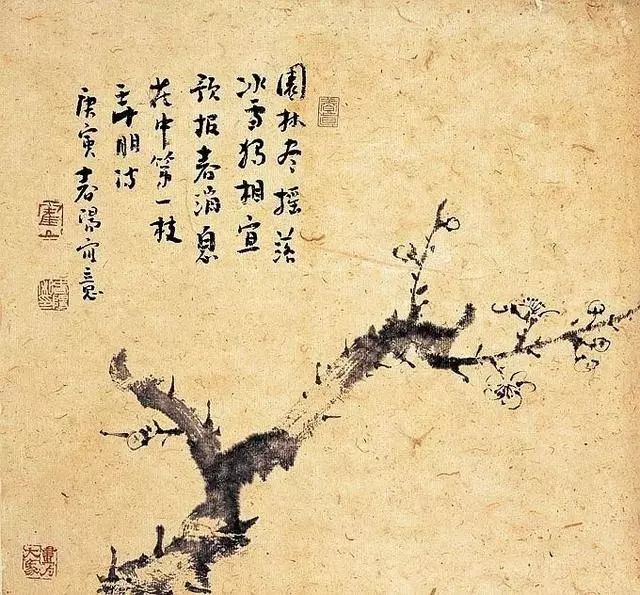 園林尽搖落
冰雪独相宜
預報春消息
花中第一枝
王十朋诗
庚寅春陽寫意